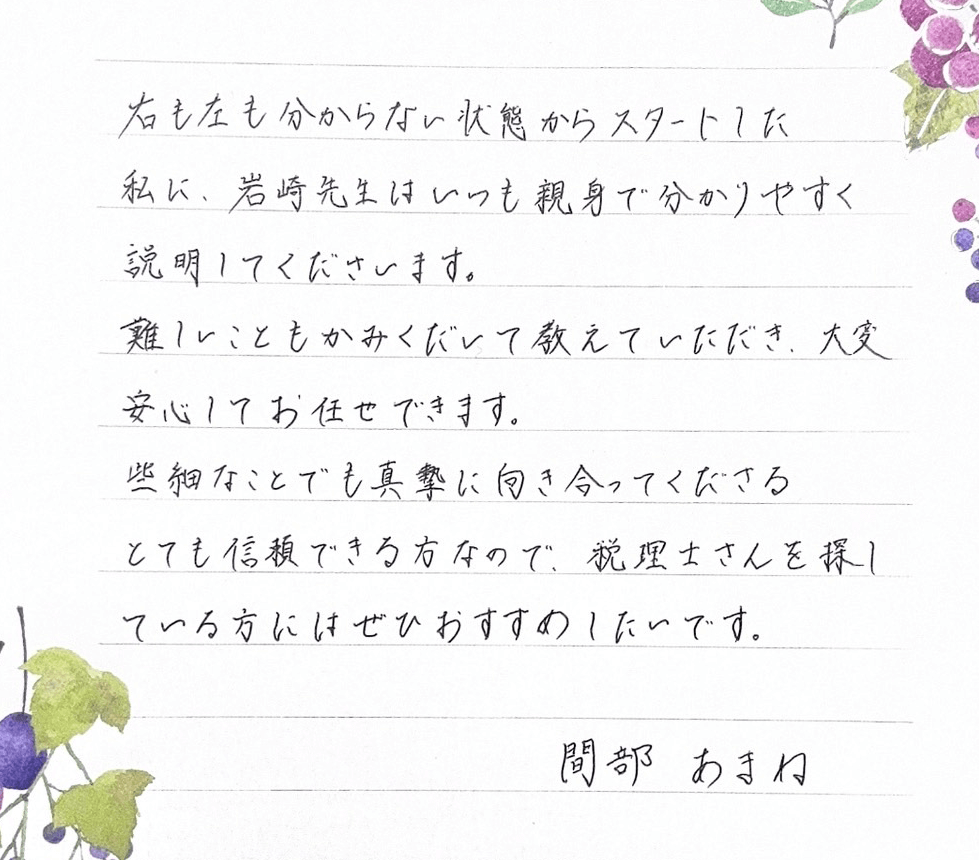 右も左も分からない状態からスタートした
私に、岩崎先生はいつも親身で分かりやすく
説明してくださいます。
難しいこともかみくだいて教えていただき、大変
安心してお任せできます。
些細なことでも真摯に向き合ってくださる
とても信頼できる方なので、税理士さんを探し
ている方にはぜひおすすめしたいです。
間部 あまね